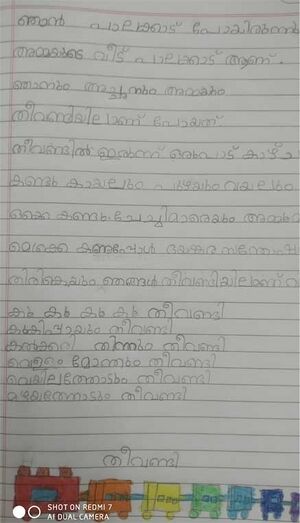 ഞാൻ പാലക്കാട് പോയിരുന്നു
അമ്മയുടെ വീട് പാലക്കാട് ആണ്.
ഞാനും അച്ഛനും അമ്മയും
തീവണ്ടിയിലാണ് പോയത്
തീവണ്ടിൽ ഇരുന്ന് ഒരുപാട് കാഴ്ച
കണ്ടു കായലും പുഴയും വയലും
ഒക്കെ കണ്ടു. ചേച്ചിമാരെയും
മൊക്കെ കണ്ടപ്പോൾ ഭയങ്കര സന്തോഷ
തിരികെയും ഞങ്ങൾ തീവണ്ടിയിലാണ്
കൂ കൂ കൂ കൂ തീവണ്ടി
കൂകിപ്പായും തീവണ്ടി
കൽക്കരി തിന്നും തീവണ്ടി
വെള്ളം മോന്തും തീവണ്ടി
വെയിലത്തോടും തീവണ്ടി
മഴയത്തോടും തീവണ്ടി
തീവണ്ടി
SHOT ON REDMI 7
AI DUAL CAMERA